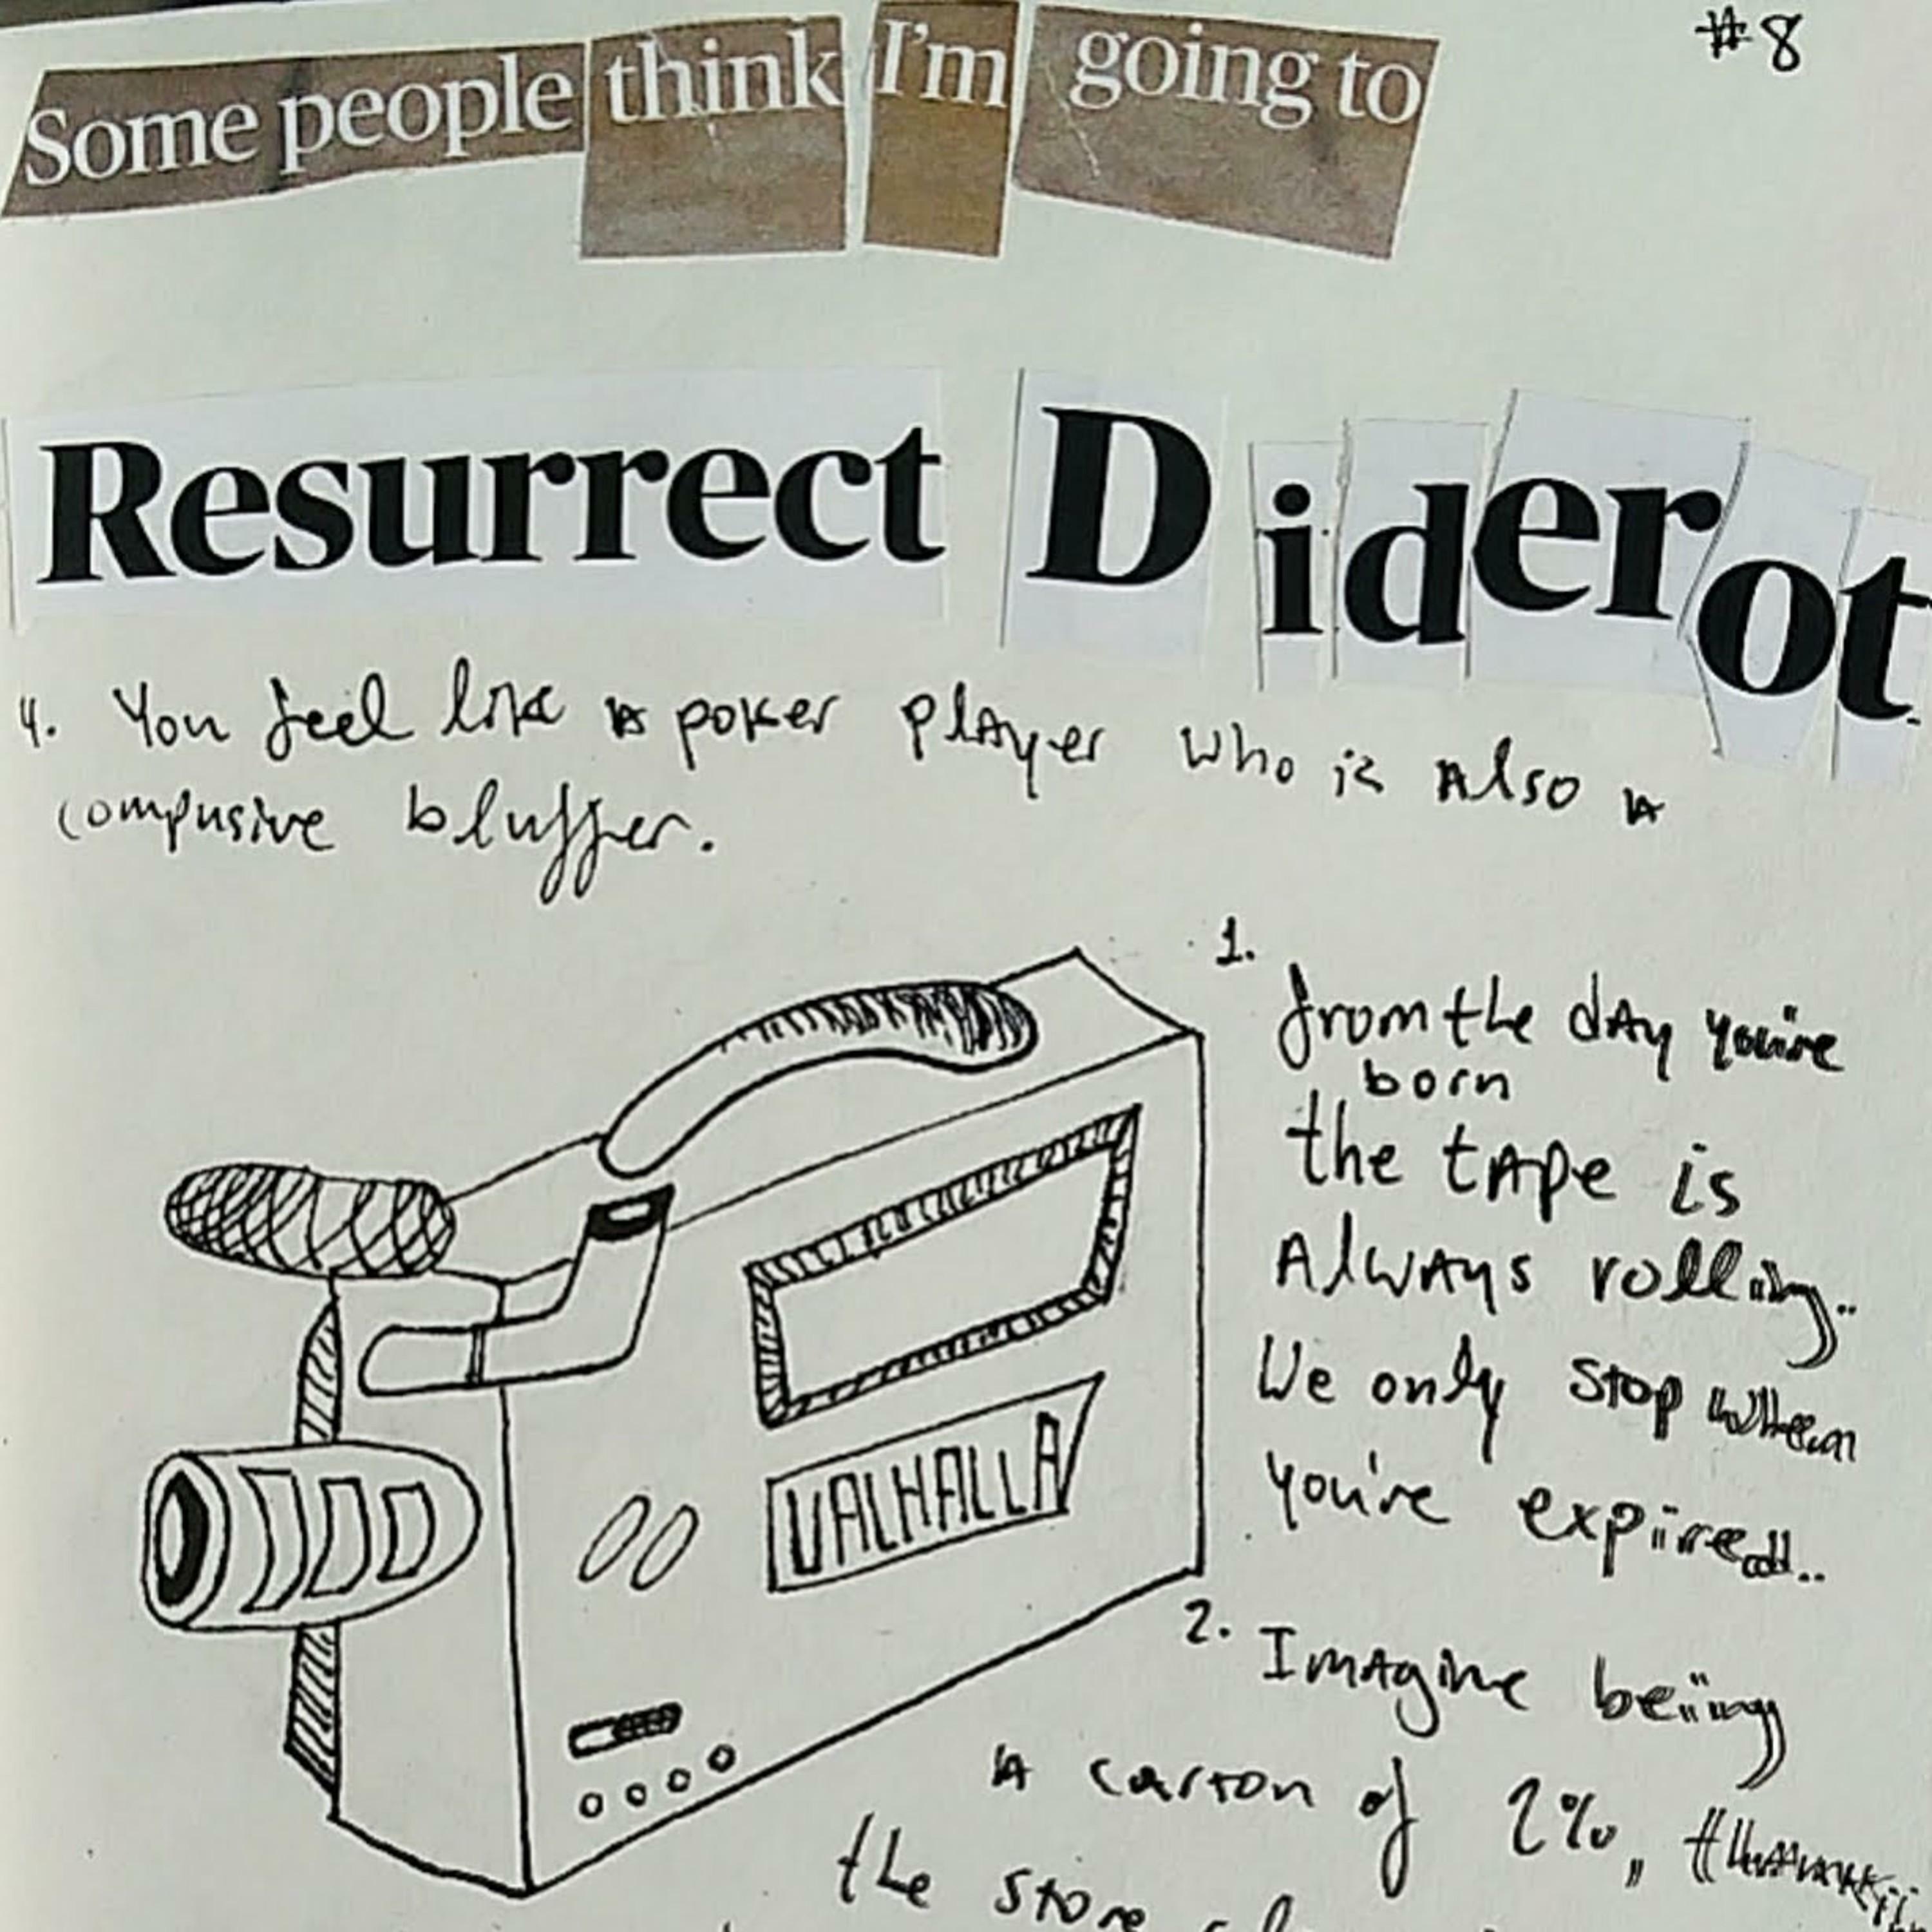 #8
Some people think I'm going to
Resurrect Diderot
4. You feel like a poker player who is also a
compusive bluffer.
1.
from the day you're
born
the tape is
Always rolling..
We only stop when
you're expired..
VALHALLA
2. Imagine being
a carton of 2%,
the store